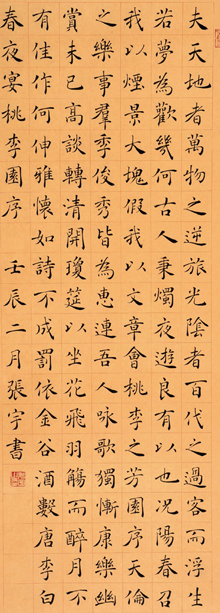 夫天地者萬物之逆旅光陰者百代之過客而浮生
若夢為歡幾何古人秉燭夜遊良有以也況陽春召
我以煙景大塊假我以文章會桃李之芳園序天倫
之樂事羣季俊秀皆為惠連吾人咏歌獨慚康樂幽
賞未已高談轉清開瓊筵以坐花飛羽觴而醉月不
有佳作何伸雅懷如詩不成罰依金谷酒數唐李白
春夜宴桃李園序 壬辰二月張宇書